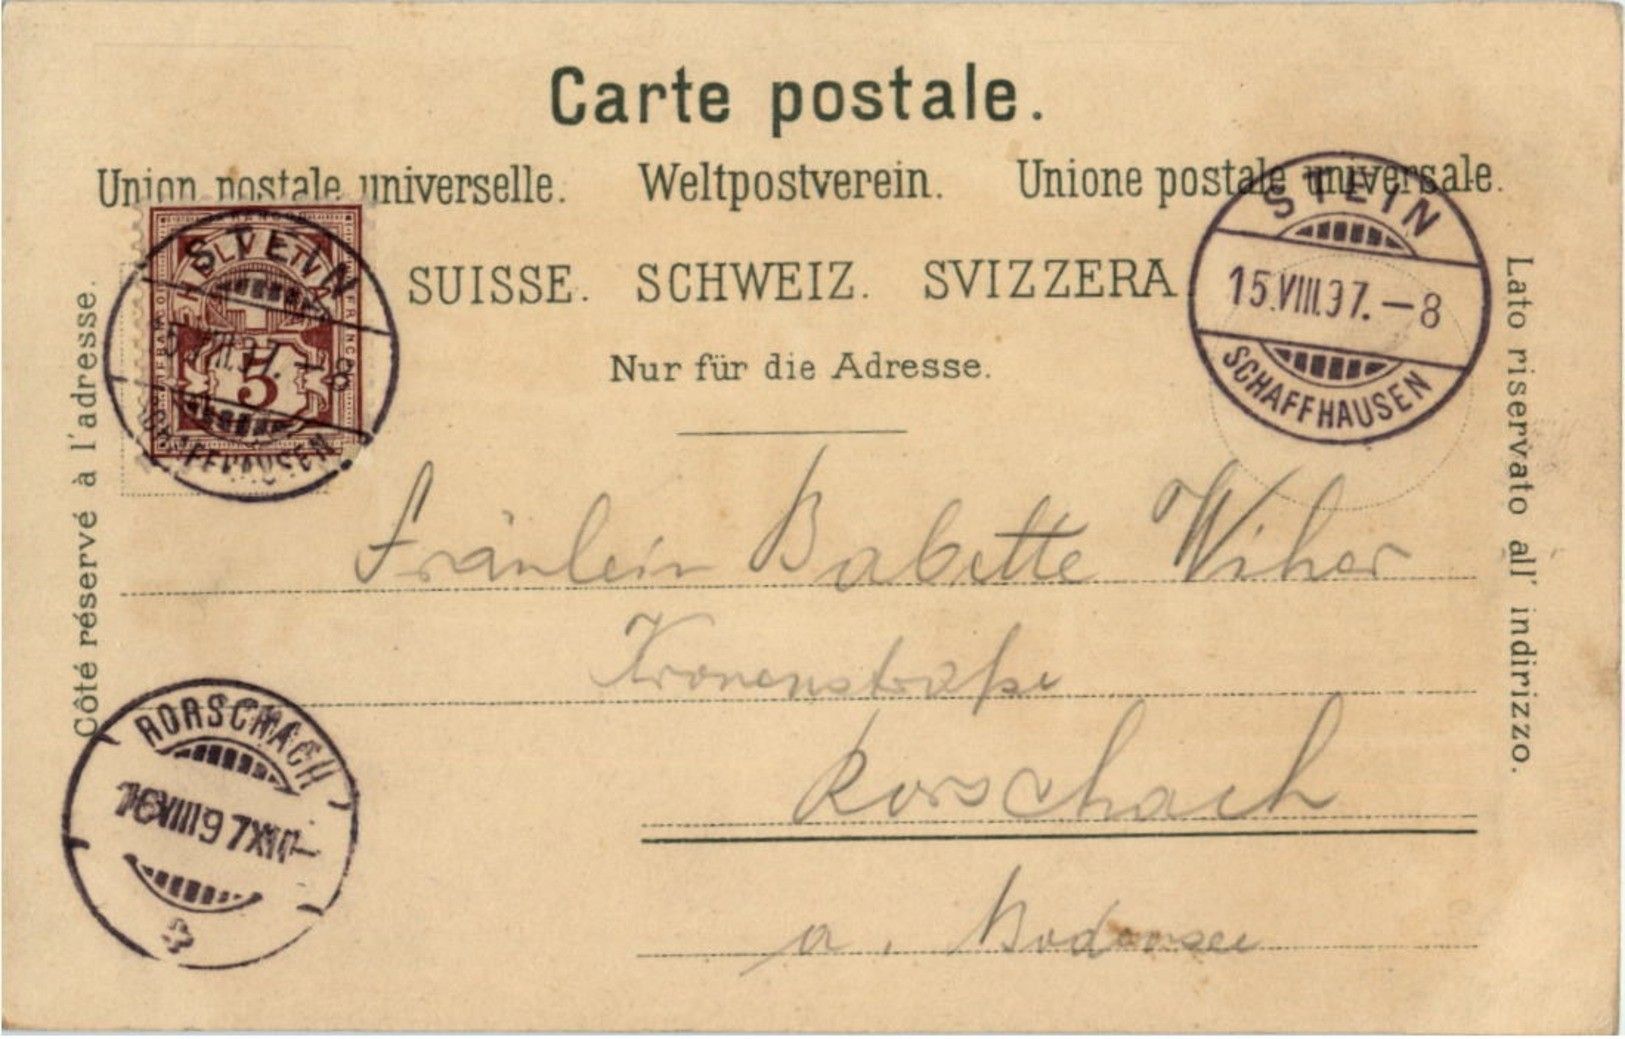 Carte postale.
Union postale universelle. Weltpostverein. Unione postale universale.
SUISSE. SCHWEIZ. SVIZZERA
Nur für die Adresse.
Côté réservé à l'adresse.
Lato riservato all' indirizzo.
FRANCO
HELVETIA
5
STEIN
15.VIII.97.-8
SCHAFFHAUSEN
STEIN
15.VIII.97.-8
SCHAFFHAUSEN
Fräulein Babette Wiher
Kronenstraße
Rorschach
a. Bodensee
RORSCHACH
16 VIII 97 XII-